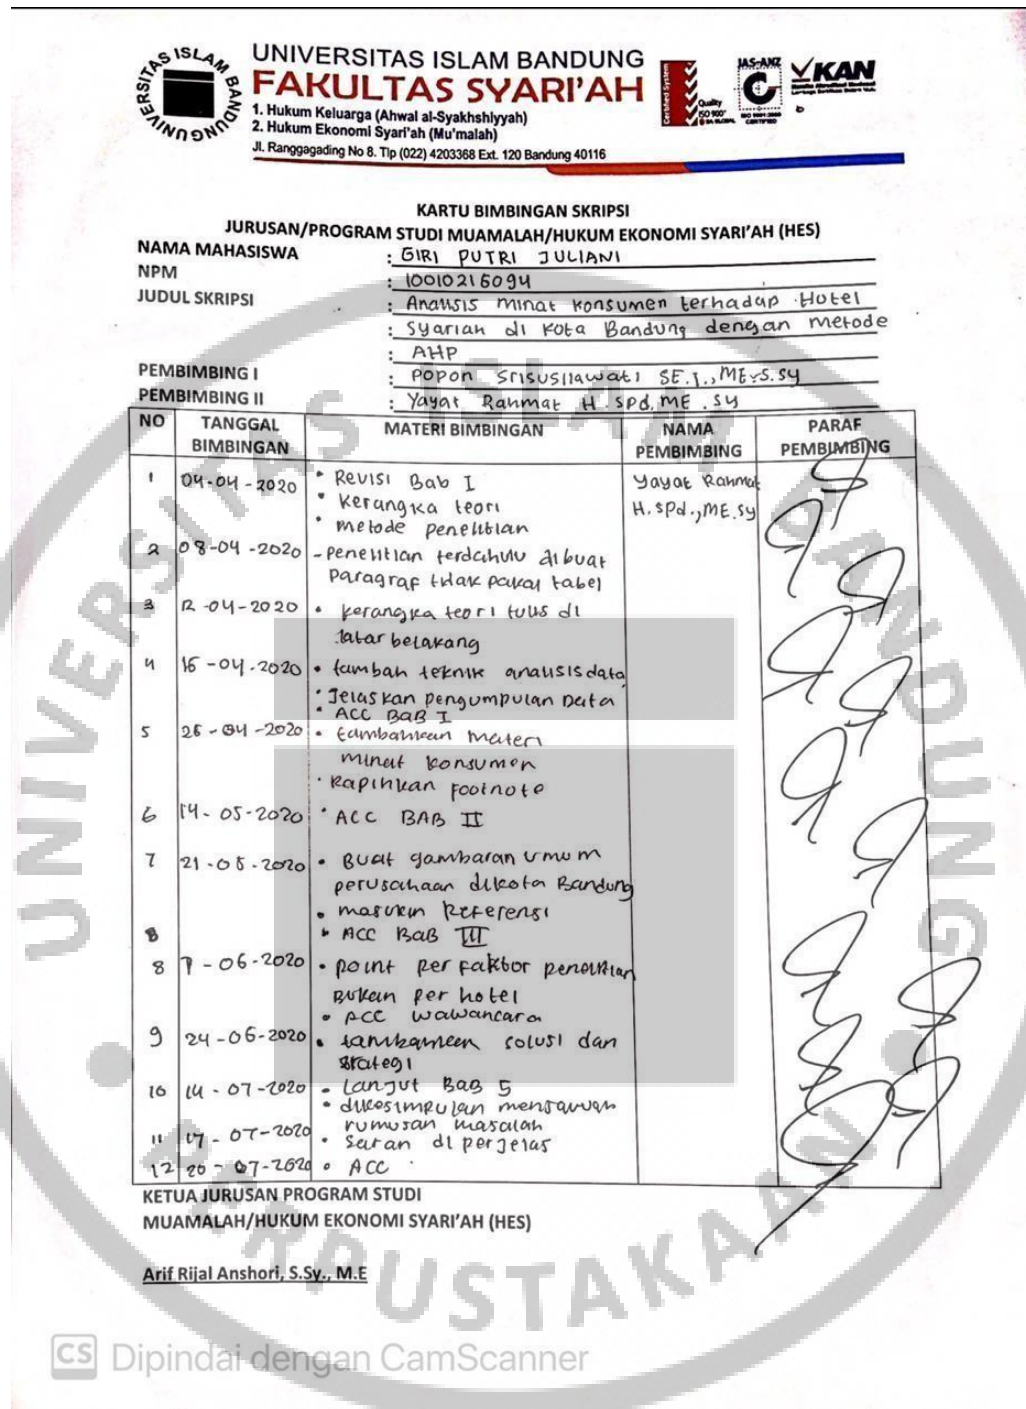 UNIVERSITAS ISLAM BANDUNG
UNIVERSITAS ISLAM BANDUNG
FAKULTAS SYARI'AH
1. Hukum Keluarga (Ahwal al-Syakhshiyyah)
2. Hukum Ekonomi Syari'ah (Mu'malah)
Jl. Ranggagading No 8. Tlp (022) 4203368 Ext. 120 Bandung 40116
Certified System
Quality
ISO 9001
SAI GLOBAL
JAS-ANZ
CERTIFIED
KAN
KARTU BIMBINGAN SKRIPSI
JURUSAN/PROGRAM STUDI MUAMALAH/HUKUM EKONOMI SYARI'AH (HES)
NAMA MAHASISWA : GIRI PUTRI JULIANI
NPM : 10010216094
JUDUL SKRIPSI : Analisis minat konsumen terhadap Hotel
: Syariah di Kota Bandung dengan metode
: AHP
PEMBIMBING I : Popon Srisusilawati SE.I., ME.S.Sy
PEMBIMBING II : Yayat Rahmat H. Spd, ME.Sy
NO TANGGAL BIMBINGAN MATERI BIMBINGAN NAMA PEMBIMBING PARAF PEMBIMBING
1 04-04-2020 • Revisi Bab I Yayat Rahmat
• Kerangka teori H. Spd., ME.Sy
• metode penelitian
2 08-04-2020 - Penelitian terdahulu dibuat
Paragraf tidak pakai tabel
3 12-04-2020 • kerangka teori tulis di
latar belakang
4 16-04-2020 • tambah teknik analisis data
• Jelaskan pengumpulan Data
• ACC BAB I
5 26-04-2020 • tambahkan materi
minat konsumen
• Rapihkan footnote
6 14-05-2020 • ACC BAB II
7 21-05-2020 • Buat gambaran umum
perusahaan dikota Bandung
• masukin Referensi
8 • ACC BAB III
8 7-06-2020 • point per faktor penelitian
Bukan per hotel
• ACC wawancara
9 24-06-2020 • tambahkan solusi dan
strategi
10 14-07-2020 - Lanjut BAB 5
• dikesimpulan menjawab
rumusan masalah
11 17-07-2020 • Saran di perjelas
12 20-07-2020 • ACC
KETUA JURUSAN PROGRAM STUDI
MUAMALAH/HUKUM EKONOMI SYARI'AH (HES)
Arif Rijal Anshori, S.Sy., M.E
UNIVERSITAS ISLAM BANDUNG
PERPUSTAKAAN
CS Dipindai dengan CamScanner